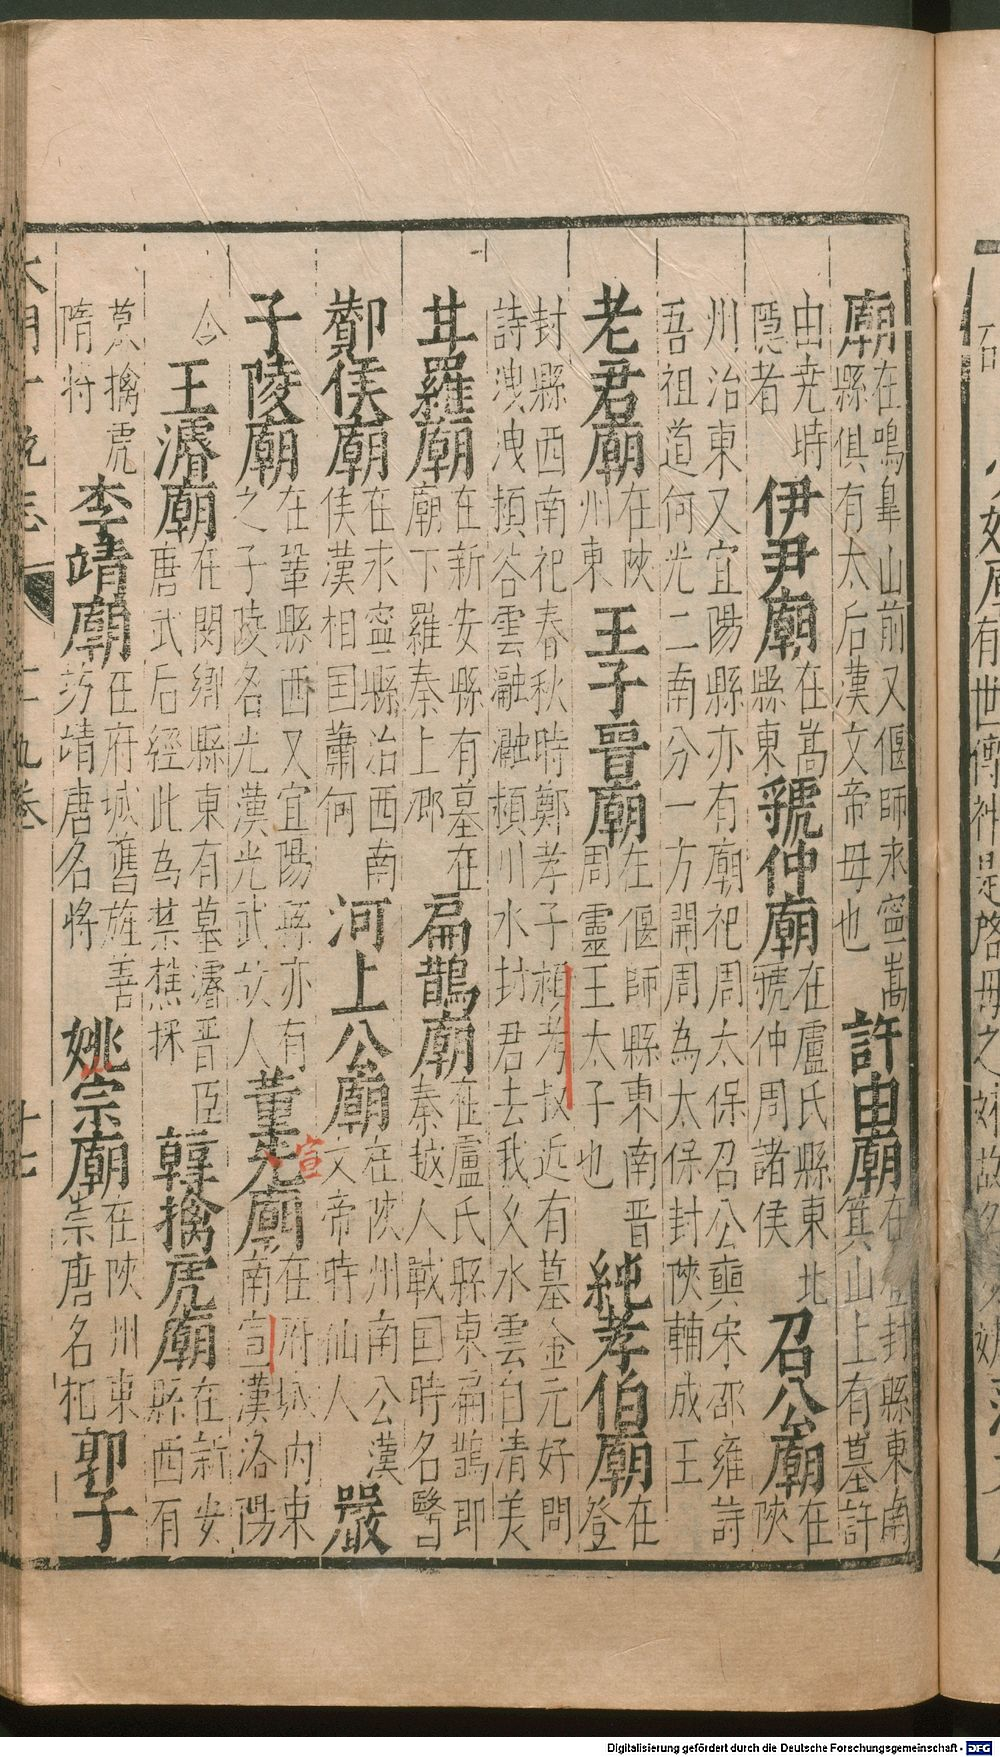 廟在鳴臯山前又偃師永寧嵩縣俱有太后漢文帝母也許由廟在登封縣東南箕山上有墓許
由堯時隱者伊尹廟在嵩縣東虢仲廟在盧氏縣東北虢仲周諸侯召公廟在陜
州治東又宜陽縣亦有廟祀周太保召公奭宋邵雍詩吾祖道何光二南分一方開周為太保封陜輔成王
老君廟在陜州東王子晉廟在偃師縣東南晉周靈王太子也純孝伯廟在登
封縣西南祀春秋時鄭孝子潁考叔近有墓金元好問詩洩洩潁谷雲瀜瀜潁川水封君去我久水雲白清美
甘羅廟在新安縣有墓在廟下羅秦上卿扁鵲廟在盧氏縣東扁鵲即秦越人戰国時名醫
酇侯廟在永寧縣治西南侯漢相国蕭何河上公廟在陜州南公漢文帝時仙人嚴
子陵廟在鞏縣西又宜陽縣亦有之子陵名光漢光武故人董宣廟在府城内東南宣漢洛陽
令王濬廟在閿鄉縣東有墓濬晋臣唐武后經此為禁樵採韓擒虎廟在新安縣西有
墓擒虎隋将李靖廟在府城舊旌善坊靖唐名將姚崇廟在陜州東崇唐名相郭子
大明一統志 二十九卷 十七
宣
Digitalisierung gefördert durch die Deutsche Forschungsgemeinschaft - DFG